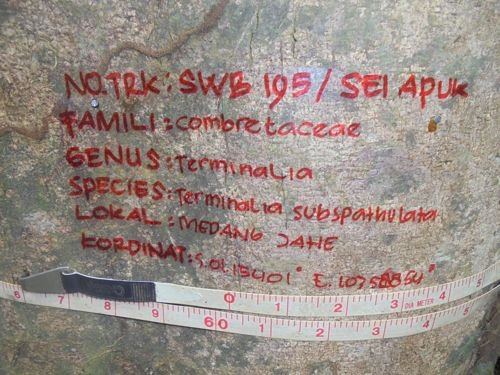 NO.TRK: SWB 195/ SEI APUK
FAMILI: combretaceae
GENUS: Terminalia
SPECIES: Terminalia subspathulata
LOKAL: MEDANG JAHE
KORDINAT: S.
6 7 8 9 0 1 2 3 4 5
DIA METER
60 1 2 3 4 5